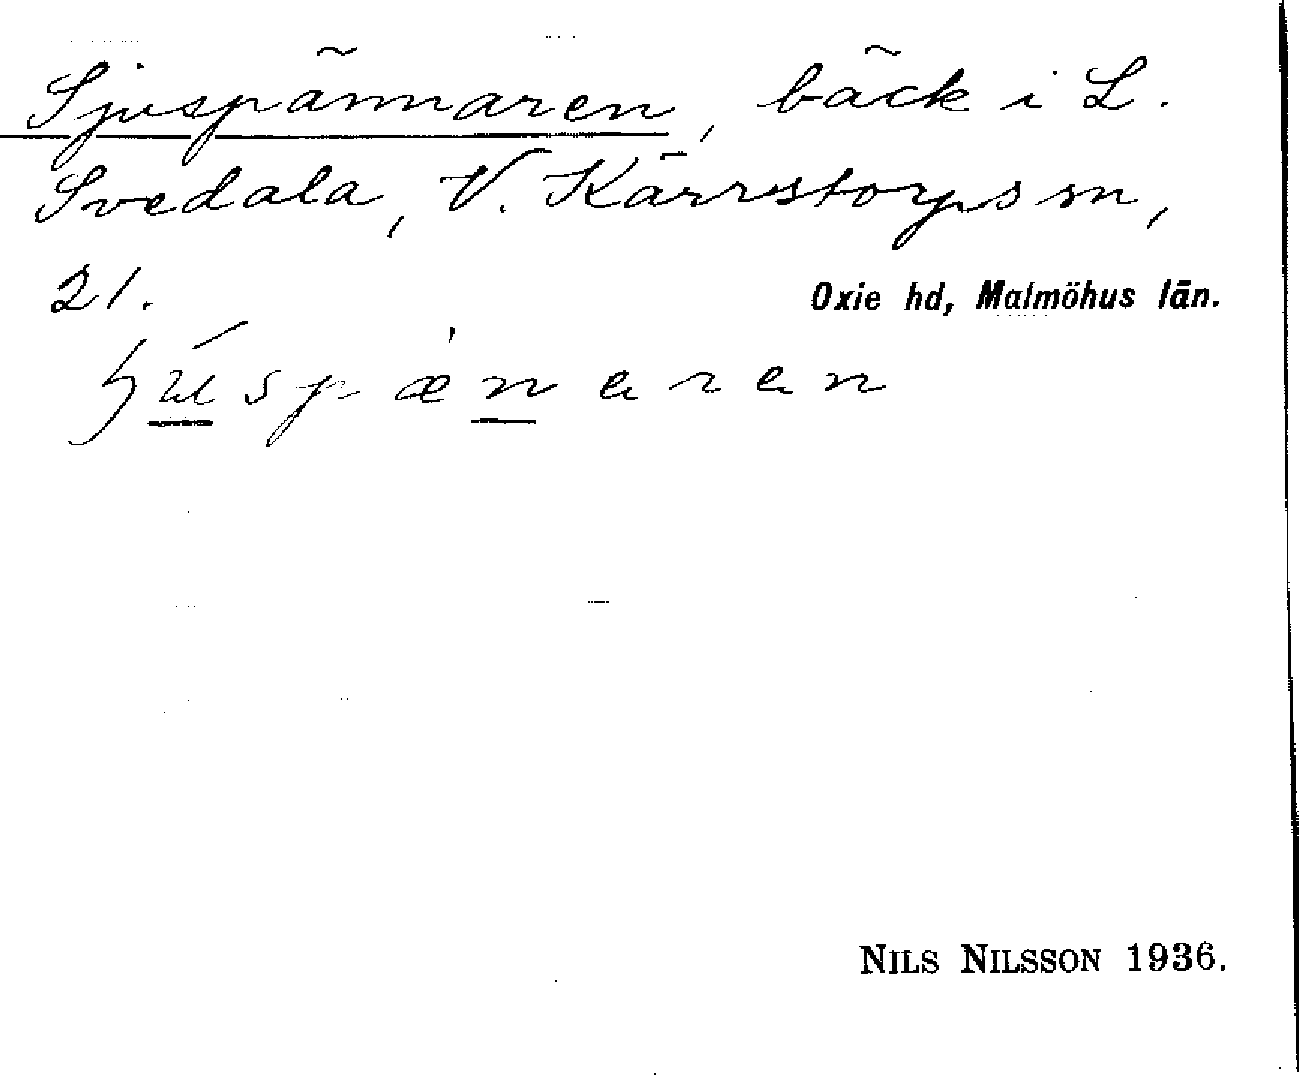 Sjuspännaren, bäck i L.
Svedala, V. Kärrstorps sn,
21.
Oxie hd, Malmöhus län.
NILS NILSSON 1936.